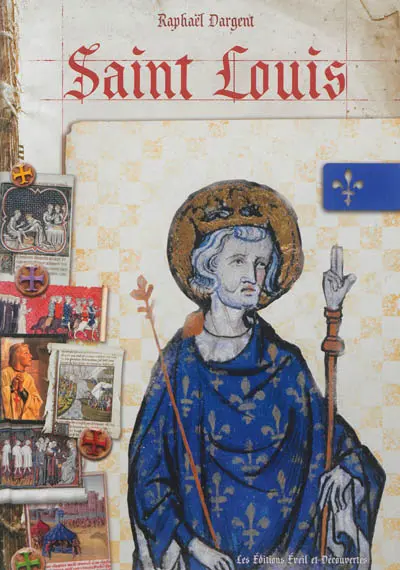 Raphaël Dargent
Saint Louis
Les Éditions Éveil et Découvertes